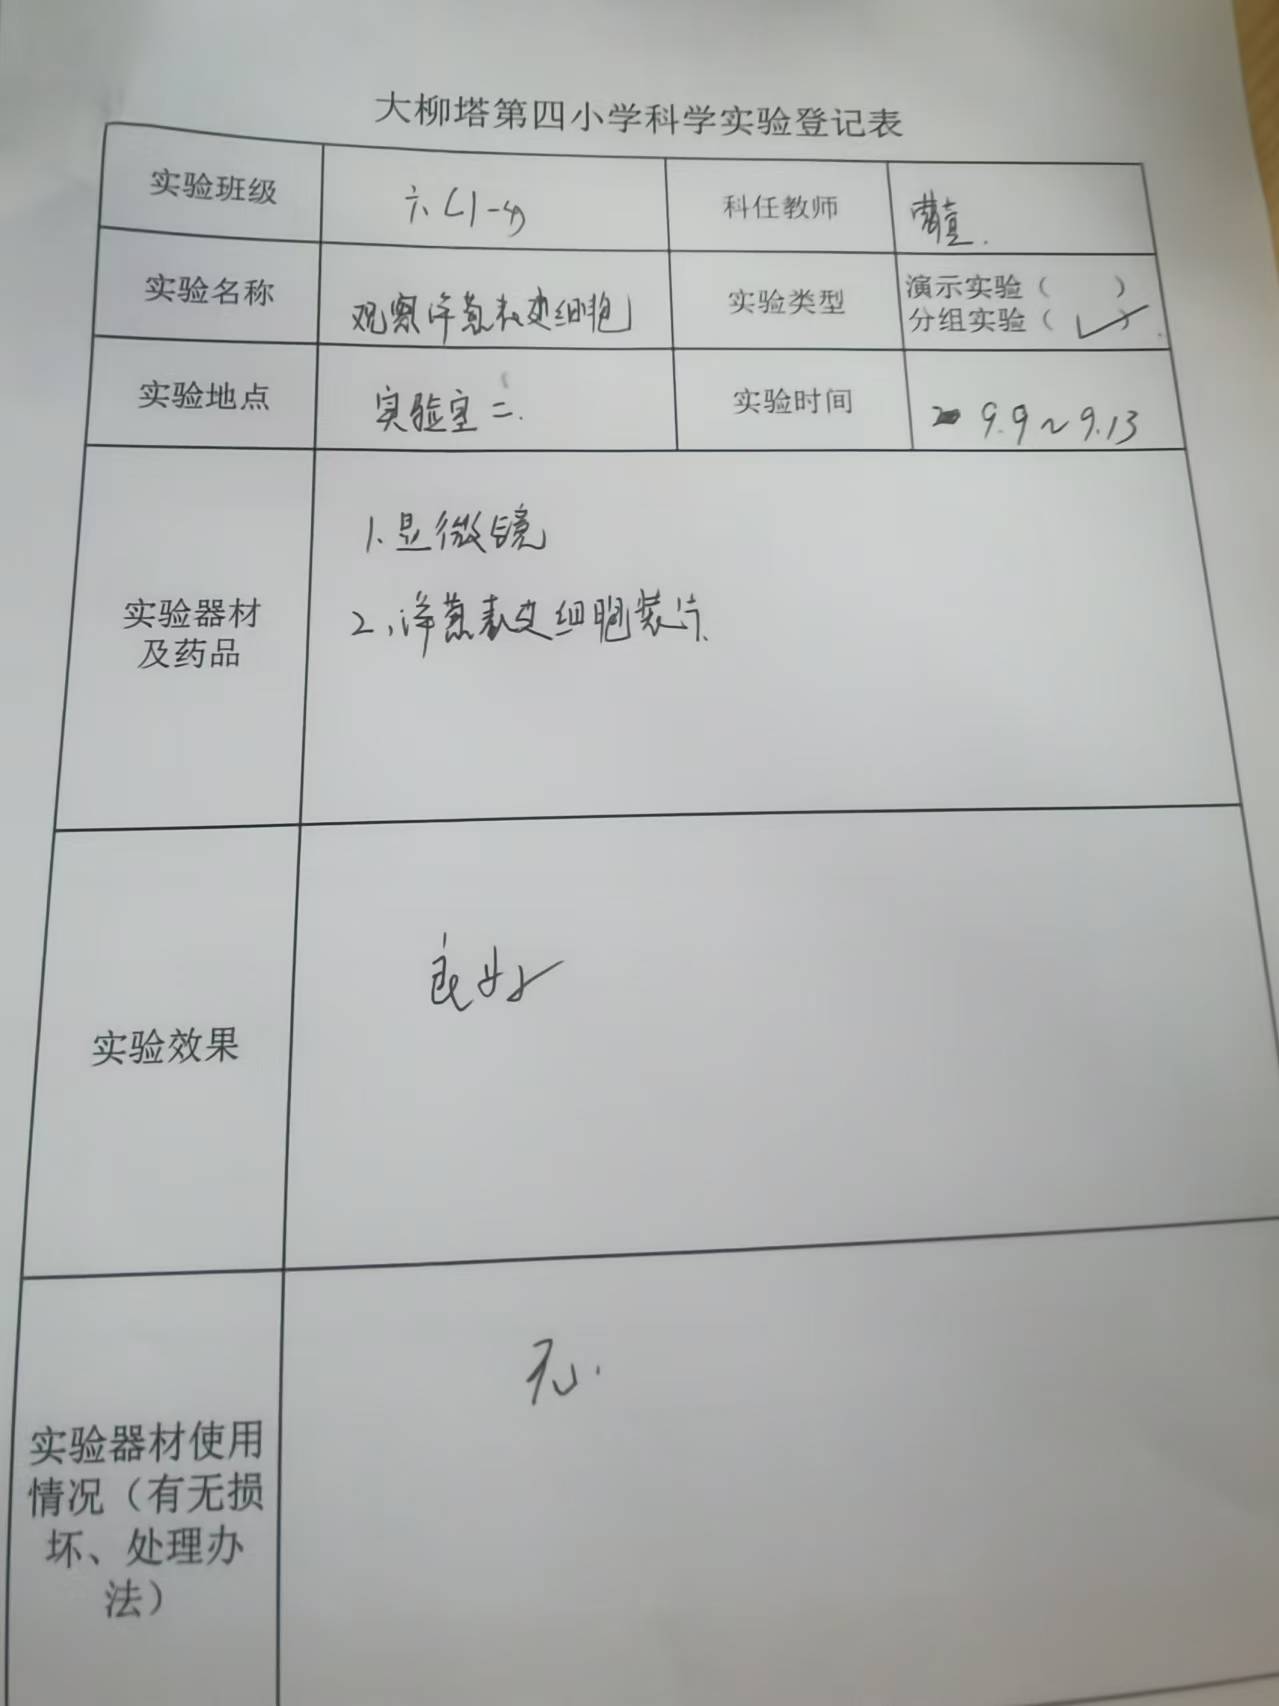 大柳塔第四小学科学实验登记表
实验班级 六(1-4) 科任教师
实验名称 观察洋葱表皮细胞 实验类型 演示实验（ ）
分组实验（✓）
实验地点 实验室二. 实验时间 9.9～9.13
实验器材
及药品
1、显微镜
2、洋葱表皮细胞装片.
实验效果 良好
实验器材使用
情况（有无损
坏、处理办
法）
无.